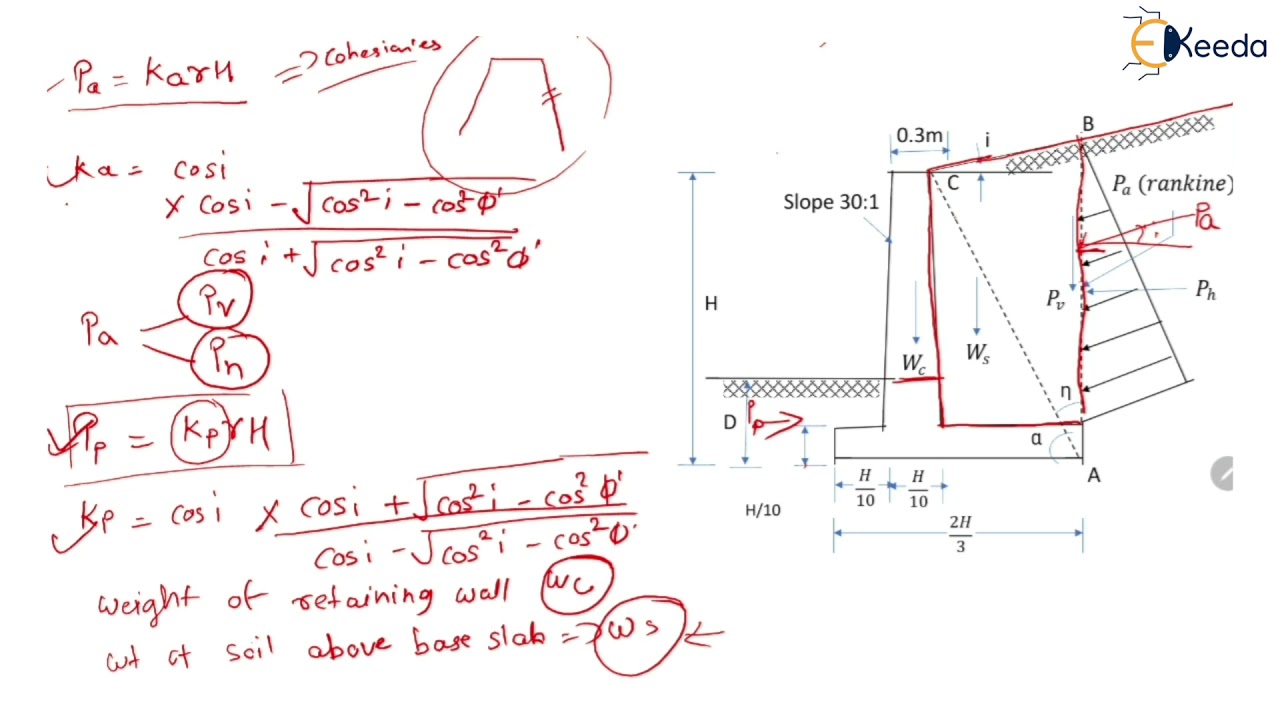 Pa = KaγH => Cohesionies
Ka = cosi
× cosi - √cos²i - cos²Φ'
cosi + √cos²i - cos²Φ'
Pa
Pv
Pn
Pp = KpγH
Kp = cosi × cosi + √cos²i - cos²Φ'
cosi - √cos²i - cos²Φ'
weight of retaining wall Wc
wt of soil above base slab => Ws
EKeeda
0.3m
i
B
C
Slope 30:1
Pₐ (rankine)
Pa
i
H
Pᵥ
Pₕ
W꜀
Wₛ
η
D
Pp
α
A
H/10
H/10
H/10
2H/3